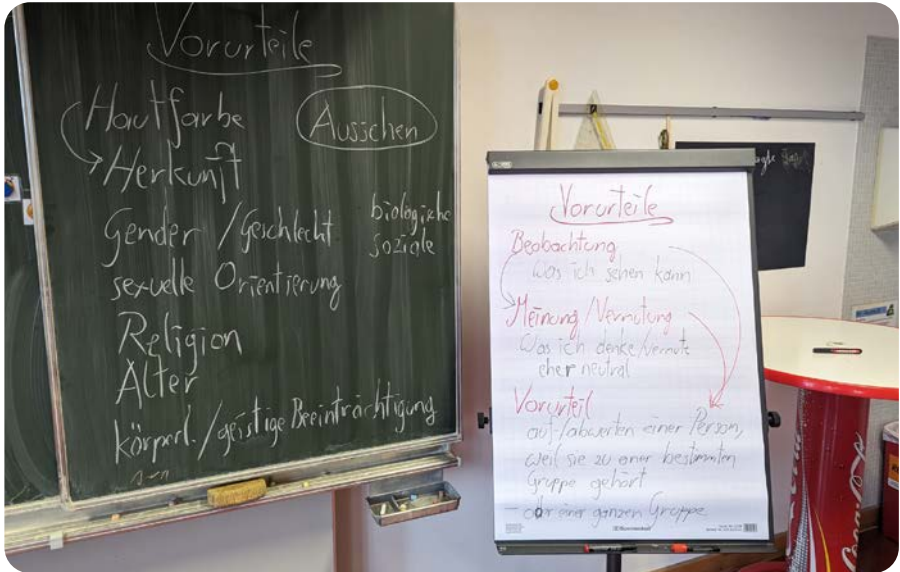 Vorurteile
Hautfarbe
Aussehen
Herkunft
Gender / Geschlecht
biologische
soziale
sexuelle Orientierung
Religion
Alter
körperl. / geistige Beeinträchtigung
Vorurteile
Beobachtung
Was ich sehen kann
Meinung / Vermutung
Was ich denke / vermute
eher neutral
Vorurteil
auf-/abwerten einer Person,
weil sie zu einer bestimmten
Gruppe gehört
– oder einer ganzen Gruppe
Coca-Cola